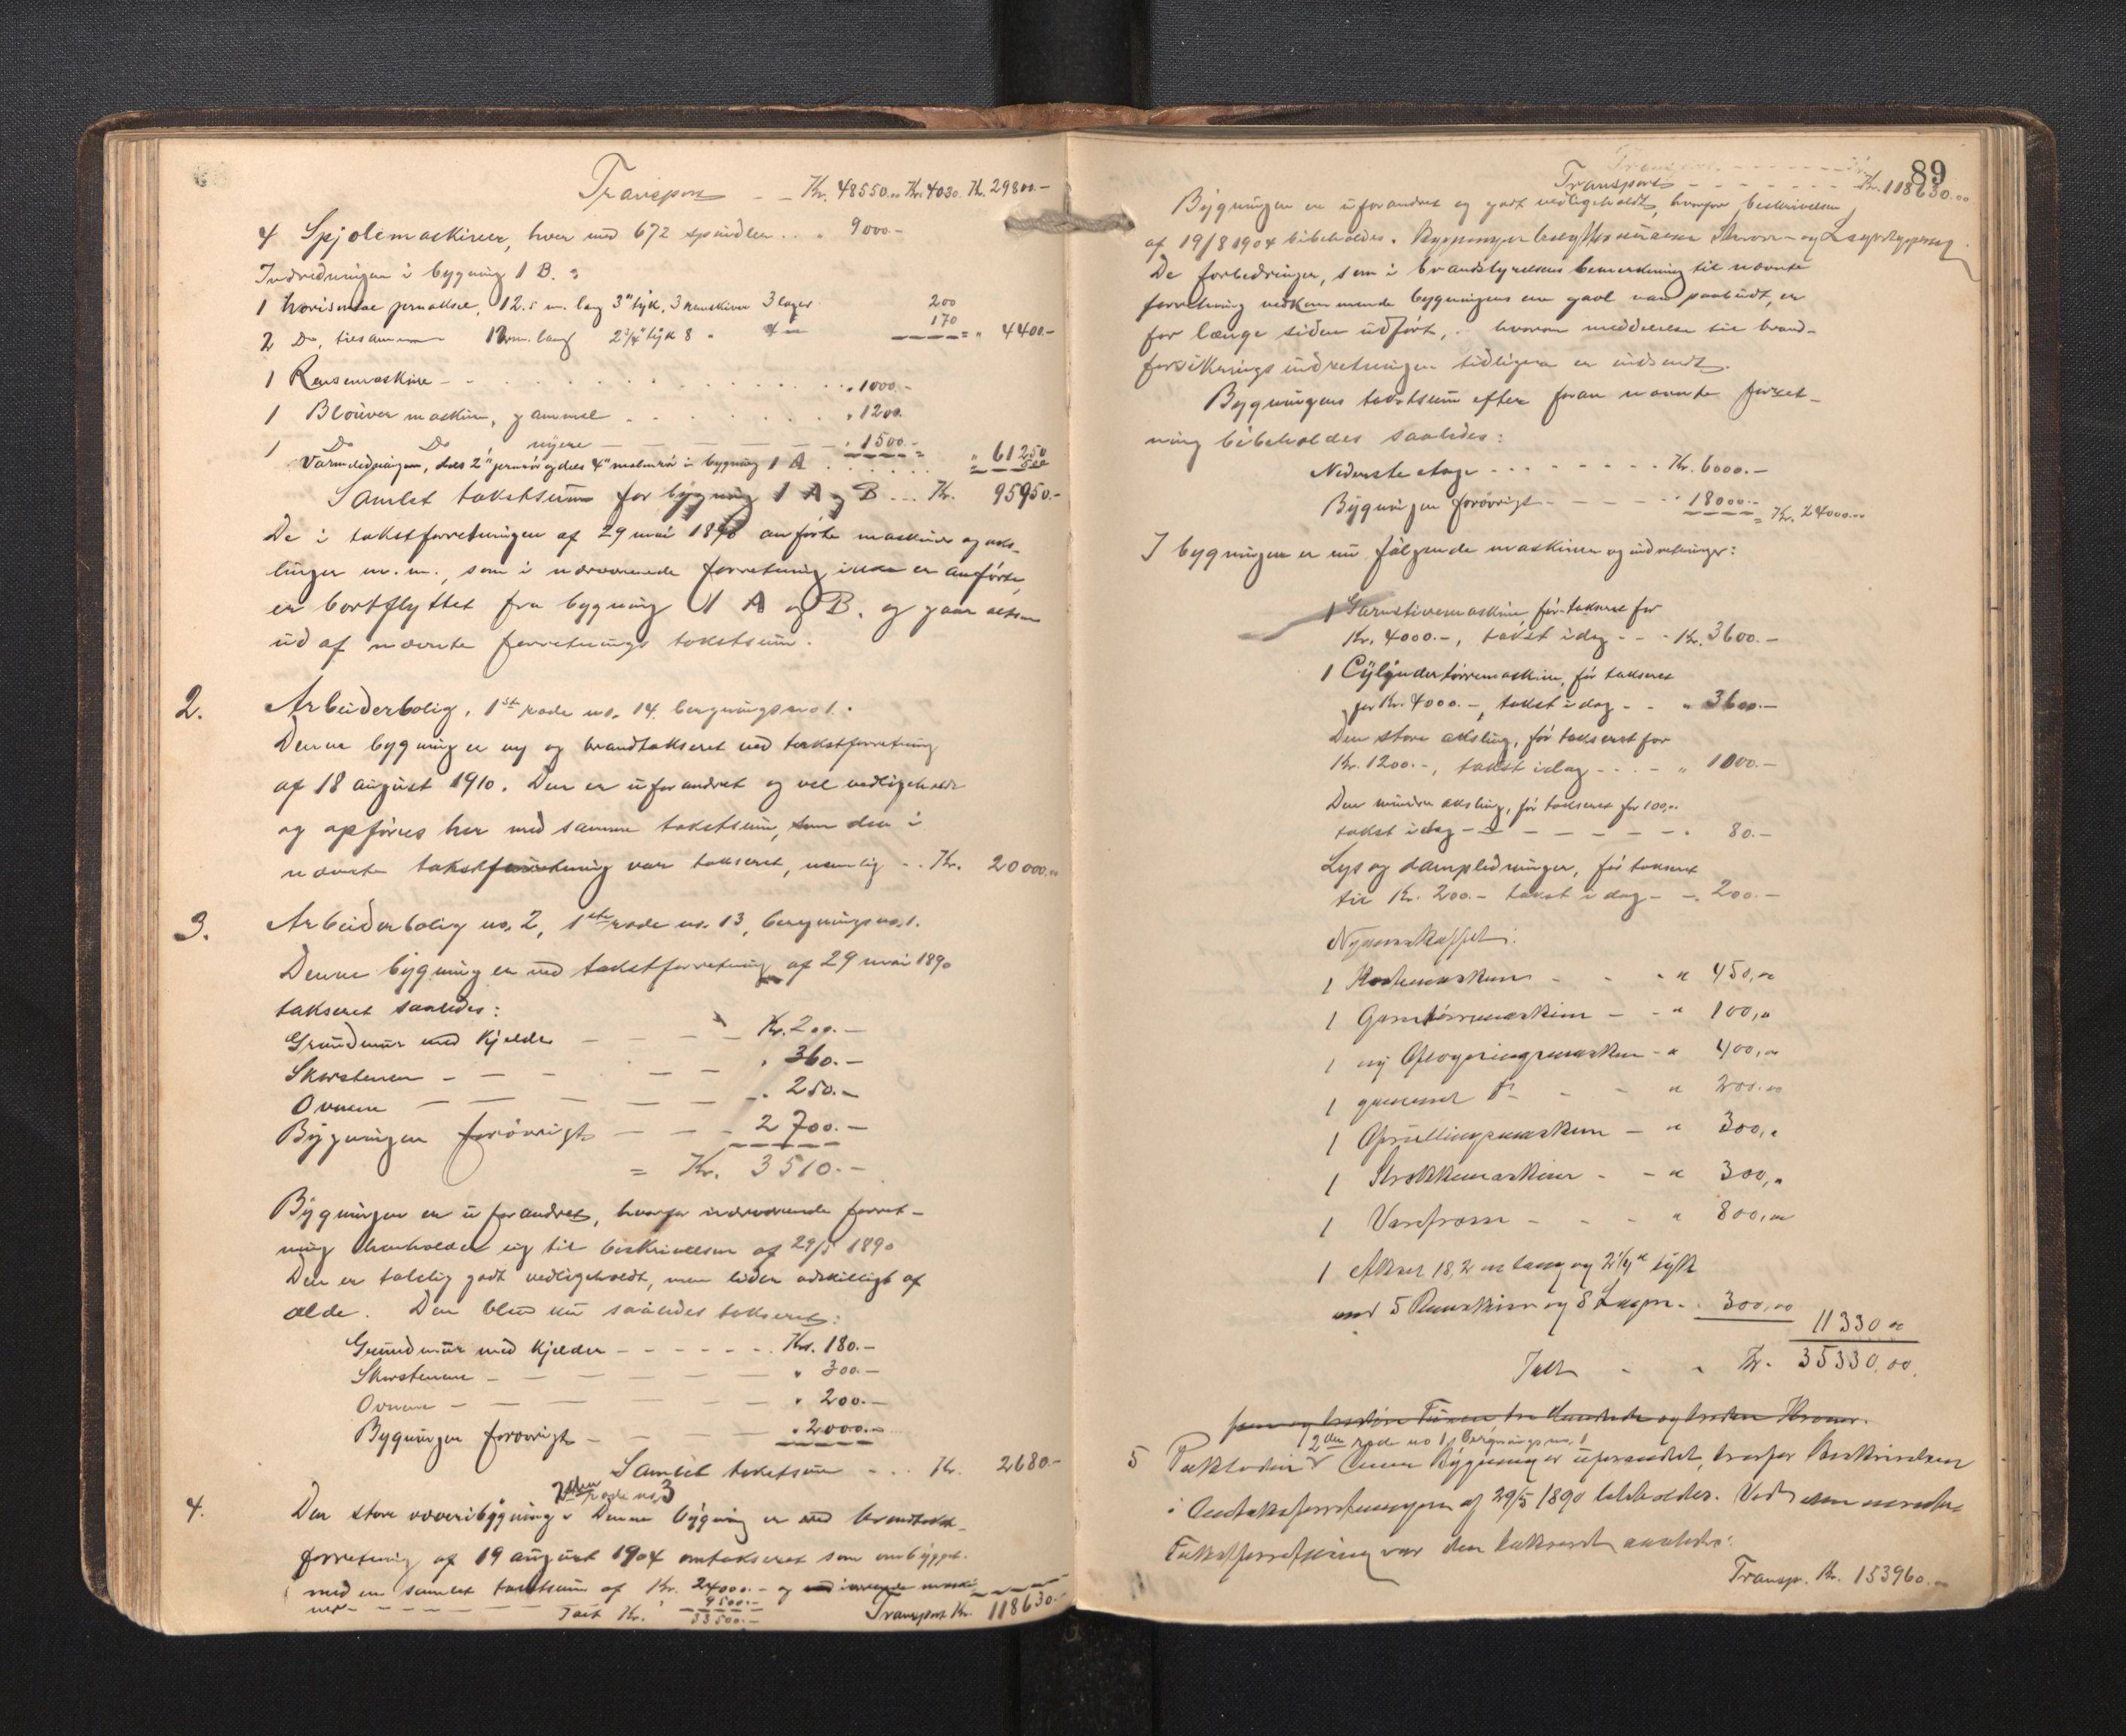 Transport - - Kr. 48550.00 Kr. 4030. Kr. 29800.-
4 Spjolemaskiner, hver med 672 spindler . . . 9000.-
Indredningen i bygning 1 B. :
1 horisontal jernaksel, 12.5 m. lang 3" tyk, 3 remskiver 3 lager 200
2 Do, tilsammen lang 2 3/4" tyk 8 " 4 " 170 = " 4400.-
1 Rensemaskine - . . . . . . . " 1000.-
1 maskin, gammel . . . . . " 1200.
1 Do Do, nyere - - - - - " 1500.- = " 61250
Varmeledningen, dels 2" jernrør og dels 4" i bygning 1 A . . . . . .
Samlet takstsum for bygning 1 A og B ... Kr. 95950.-
De i takstforretningen af 29 mai 1890 anførte maskiner og aks-
linger m. m., som i nærværende forretning ikke er anført,
er bortflyttet fra bygning 1 A og B. og gaar altsaa
ud af nævnte forretnings takstsum.
2. Arbeiderbolig, 1ste rode no. 14, bergningsno 1.
Denne bygning er ny og brandtakseret ved takstforretning
af 18 august 1910. Den er uforandret og vel vedligeholdt
og opføres her med samme takstsum, som den i
nævnte takstforretning var takseret, nemlig - . Kr. 20000.00
3. Arbeiderbolig no. 2, 1ste rode no. 13, bergningsno. 1.
Denne bygning er ved takstforretning af 29 mai 1890
takseret saaledes:
Grundmur med kjelder - - - - Kr. 200.-
Skorstenen - - - - - " 360.-
Ovnene - - - - - - " 250.-
Bygningen forøvrigt - - - 2700.-
= Kr. 3510.-
Bygningen er uforandret, hvorfor nærværende forret-
ning henholder sig til beskrivelsen af 29/5 1890
Den er taalelig godt vedligeholdt, men lider adskilligt af
ælde. Den blev nu saaledes takseret:
Grundmur med kjelder - - - - - - Kr. 180.-
Skorstenene - - - - - - " 300.-
Ovnene - - - - - " 200.-
Bygningen forøvrigt - - - " 2000.00
Samlet takstsum - . . Kr. 2680.-
2den rode no. 3
4. Den store væveribygning. Denne bygning er ved brandtakst-
forretning af 19 august 1904 omtakseret som ombygget.
med en samlet takstsum af Kr. 24000.- og maski-
ner - - - - - - 9500.-
Talt Kr. 33500.- Transport Kr. 118630.-
89
Transport - - - - - - Kr. 118630.00
Bygningen er uforandret og godt vedligeholdt, hvorfor beskrivelsen
af 19/8 1904 bibeholdes. Bygningen benyttes
De forbedringer, som i brandstyrelsens bemerkning til nævnte
forretning vedkommende bygningens ene gavl var paabudt, er
for længe siden udført, hvorom meddelelse til brand-
forsikringsindretningen tidligere er indsendt.
Bygningens takstsum efter foran nævnte forret-
ning bibeholdes saaledes:
Nederste etage - - - - - - - Kr. 6000.-
Bygningen forøvrigt - - - - - " 18000.- = Kr. 24000.00
I bygningen er nu følgende maskiner og indretninger:
1 før takseret for
Kr. 4000.-, takst idag - - - Kr. 3600.-
1 Cylindertørremaskine, før takseret
for Kr. 4000.-, takst idag - - " 3600.-
Den store aksling, før takseret for
Kr. 1200.-, takst idag - - - - " 1000.-
Den mindre aksling, før takseret for 100,00
takst idag - - - - - - - 80.-
Lys og dampledninger, før takseret
til Kr. 200.- takst idag - - . 200.-
Nyanskaffet:
1 - - " 450,00
1 Garntørremaskine - - " 100,00
1 ny - " 400,00
1 gammel do - - " 200.00
1 - " 300,00
1 Strækkemaskine - - " 300,00
1 - - - " 800,00
1 Aksel 18,2 m lang og 2 1/4" tykk
med 5 Remskiver og 8 Lager - . 300,00 11330 00
Ialt - - Kr. 35330.00.
fem og tredive Tusen tre Hundrede og tredive Kroner.
2den rode no 1, Bergnings no. 1
5 Denne Bygning er uforandret, hvorfor Beskrivelsen
i af 29/5 1890 bibeholdes. Ved den nævnte
Takstforretning var den takseret saaledes:
Transp. Kr. 153960.00